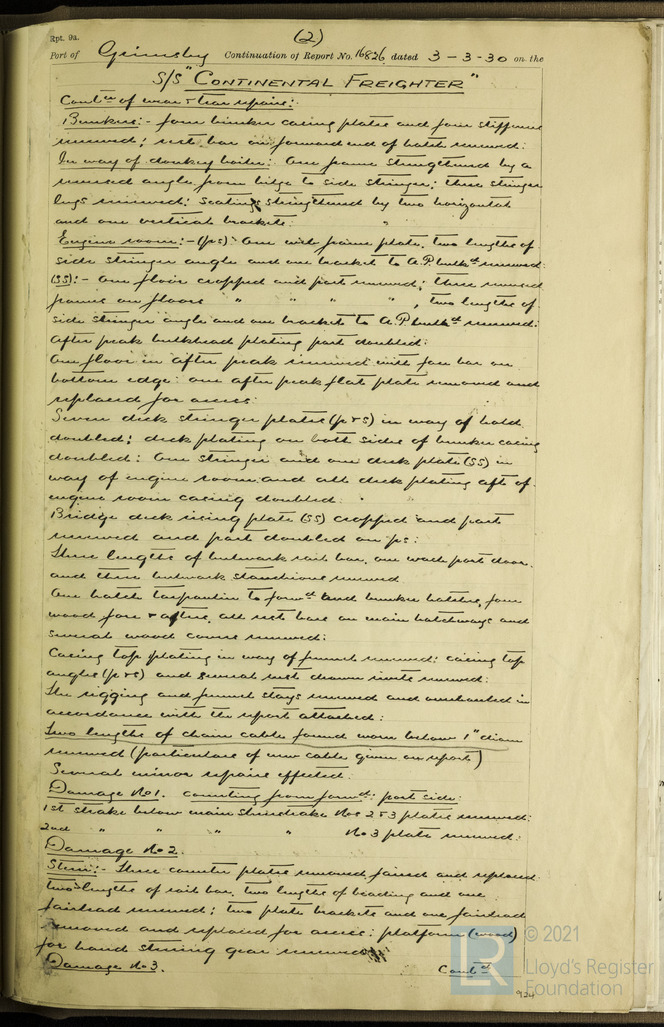 Rpt. 9a.
(2)
Port of Grimsby Continuation of Report No. 16826 dated 3-3-30 on the
S/S "CONTINENTAL FREIGHTER"
Contn of wear & tear repairs:
Bunkers:- four bunker casing plates and four stiffeners
renewed; rest bar on forward end of hatch renewed:
In way of donkey boiler: One frame strengthened by a
reversed angle from bilge to side stringer; three stringer
lugs renewed: seating strengthened by two horizontal
and one vertical brackets:
Engine room:- (ps): One web frame plate, two lengths of
side stringer angle and one bracket to A.P. bulkd renewed:
(SS):- One floor cropped and part renewed; three reversed
frames on floors " " " " , two lengths of
side stringer angle and one bracket to A.P bulkd renewed:
After peak bulkhead plating part doubled:
One floor in after peak renewed with face bar on
bottom edge: one after peak flat plate removed and
replaced for access:
Seven deck stringer plates (p & s) in way of hold
doubled; deck plating on both sides of bunker casing
doubled: One stringer and one deck plate (SS) in
way of engine room and all deck plating aft of
engine room casing doubled:
Bridge deck rising plate (SS) cropped and part
renewed and part doubled on ps:
Three lengths of bulwark rail bar, one wash port door,
and three bulwark stanchions renewed
One hatch tarpaulin to forwd and bunker hatches, four
wood fore & afters, all rest bars on main hatchways and
several wood covers renewed:
Casing top plating in way of funnel renewed: casing top
angles (p & s) and several rest drawn rivets renewed:
The rigging and funnel stays renewed and overhauled in
accordance with the report attached:
Two lengths of chain cable found worn below 1" diam
renewed (particulars of new cable given on report)
Several minor repairs effected:
Damage No 1. counting from forwd: port side:
1st strake below main sheerstrake Nos 2 & 3 plates renewed:
2nd " " " " No 3 plate renewed:
Damage No 2.
Stern:- Three counter plates removed faired and replaced
two lengths of rail bar, two lengths of beading and one
fairlead renewed; two plate brackets and one fairlead
removed and replaced for access: platform (wood)
for hand steering gear renewed
Damage No 3.
Contd
924
LR
© 2021
Lloyd's Register
Foundation